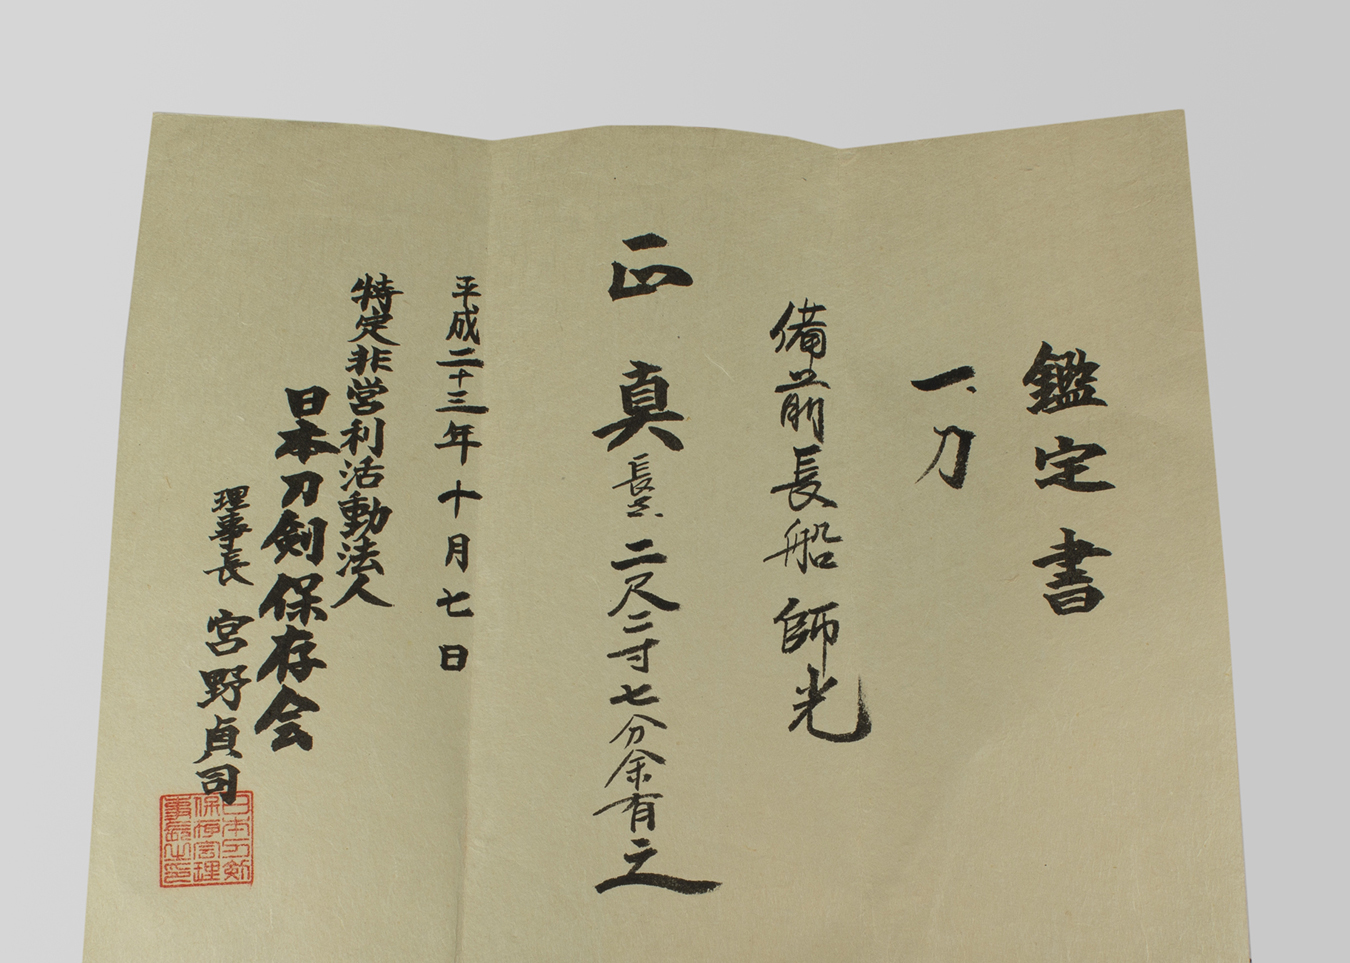 鑑定書
一、刀
備前長船師光
正真 長サ、二尺二寸七分余有之
平成二十三年十月七日
特定非営利活動法人
日本刀剣保存会
理事長 宮野貞司
日本刀剣
保存会理
事長之印